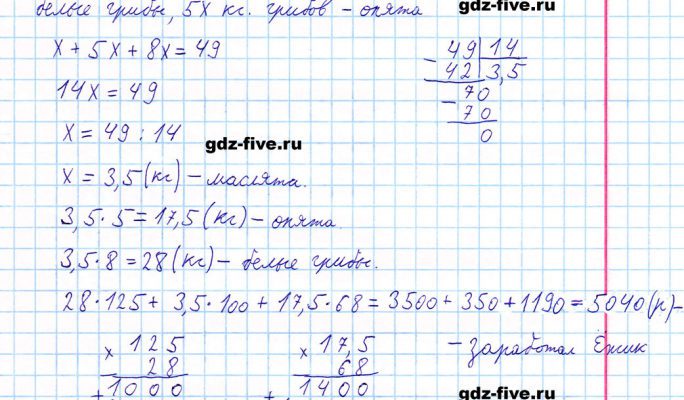 gdz-five.ru
белые грибы, 5x кг. грибов - опята
x + 5x + 8x = 49
14x = 49
x = 49 : 14
x = 3,5 (кг) - маслята.
3,5 · 5 = 17,5 (кг) - опята.
3,5 · 8 = 28 (кг) - белые грибы.
49 14
- 42 3,5
- 70
70
0
gdz-five.ru
28 · 125 + 3,5 · 100 + 17,5 · 68 = 3500 + 350 + 1190 = 5040 (р) -
- заработал Ёжик
× 125
28
+ 1000
× 17,5
68
+ 1400
gdz-five.ru